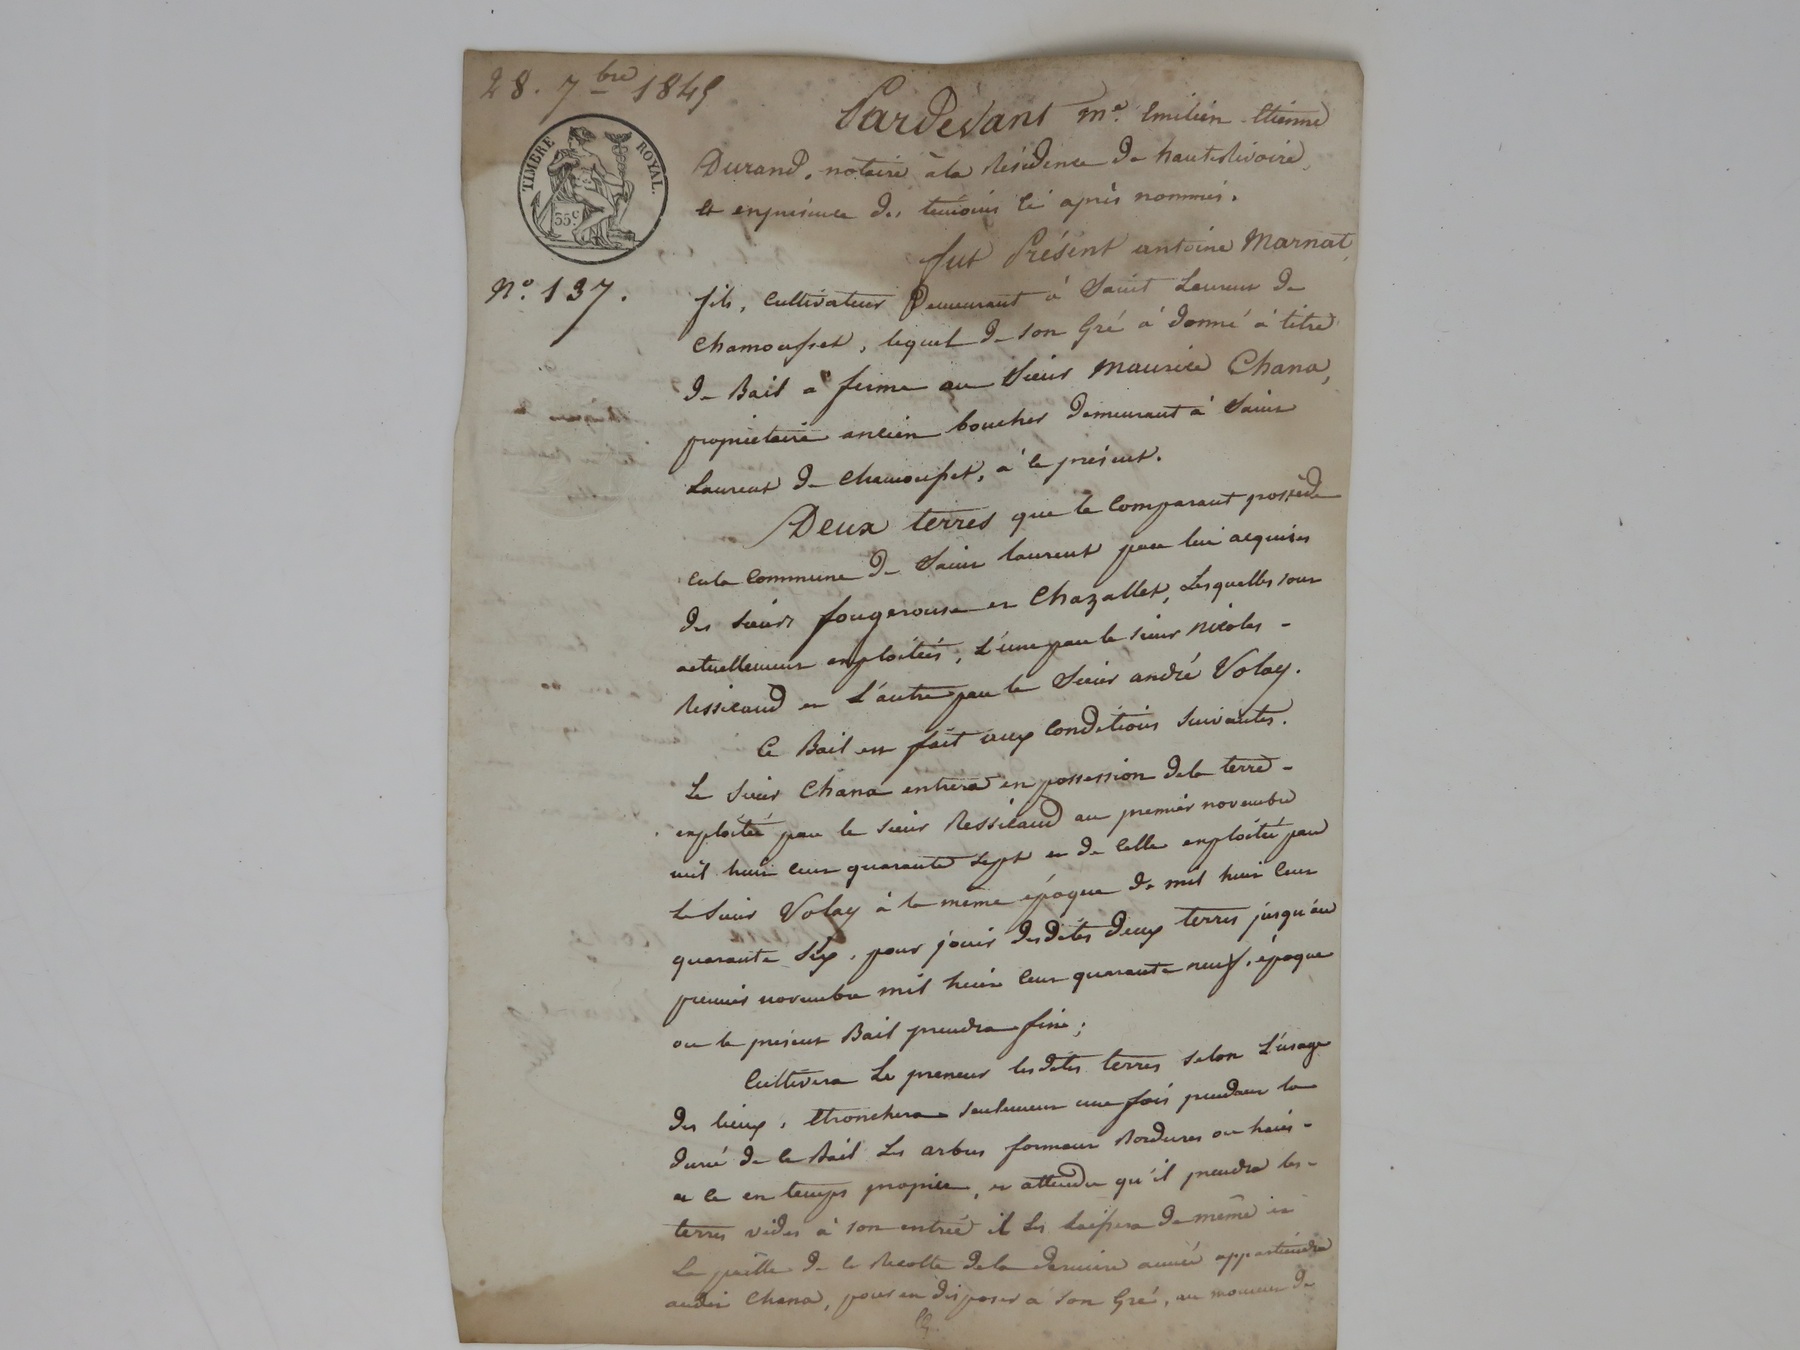 28. 7bre 1845
Pardevant Me. Emilien Etienne
TIMBRE ROYAL.
35c
Durand, notaire à la Résidence de hauterivoire,
et enprésence des temoins ci après nommés.
fut Présent antoine Marnat,
No. 137.
fils, cultivateur Demeurant à Saint Laurent de
Chamousset, lequel de son Gré à donné à titre
de Bail a ferme au Sieur Maurice Chana,
propriétaire ancien boucher demeurant à Saint
Laurent de Chamousset, à ce présent.
Deux terres que le Comparant possède
enla Commune de Saint Laurent par lui acquises
des sieurs fougerouse et Chazallet, Lesquelles sont
actuellement exploitées, L'une par le sieur Nicolas -
Ressicaud et L'autre par le Sieur andré Volay.
Ce Bail est fait aux Conditions suivantes.
Le Sieur Chana entrera en possession dela terre -
exploitée par le sieur Ressicaud au premier novembre
mil huit cent quarante sept et de celle exploitée par
le Sieur Volay à la même époque de mil huit cent
quarante six, pour jouir desdites deux terres jusqu'au
premier novembre mil huit cent quarante neuf, époque
ou le présent Bail prendra fin ;
Cultivera Le preneur lesdites terres selon L'usage
des lieux, Etronchera seulement une fois pendant la
durée de ce Bail Les arbres formant Bordures ou haies -
et ce en temps propice, et attendu qu'il prendra les -
terres vides à son entrée il les laissera de même
La paille de la Récolte dela dernière année appartiendra
audit Chana, pour en disposer à son Gré, au moment de